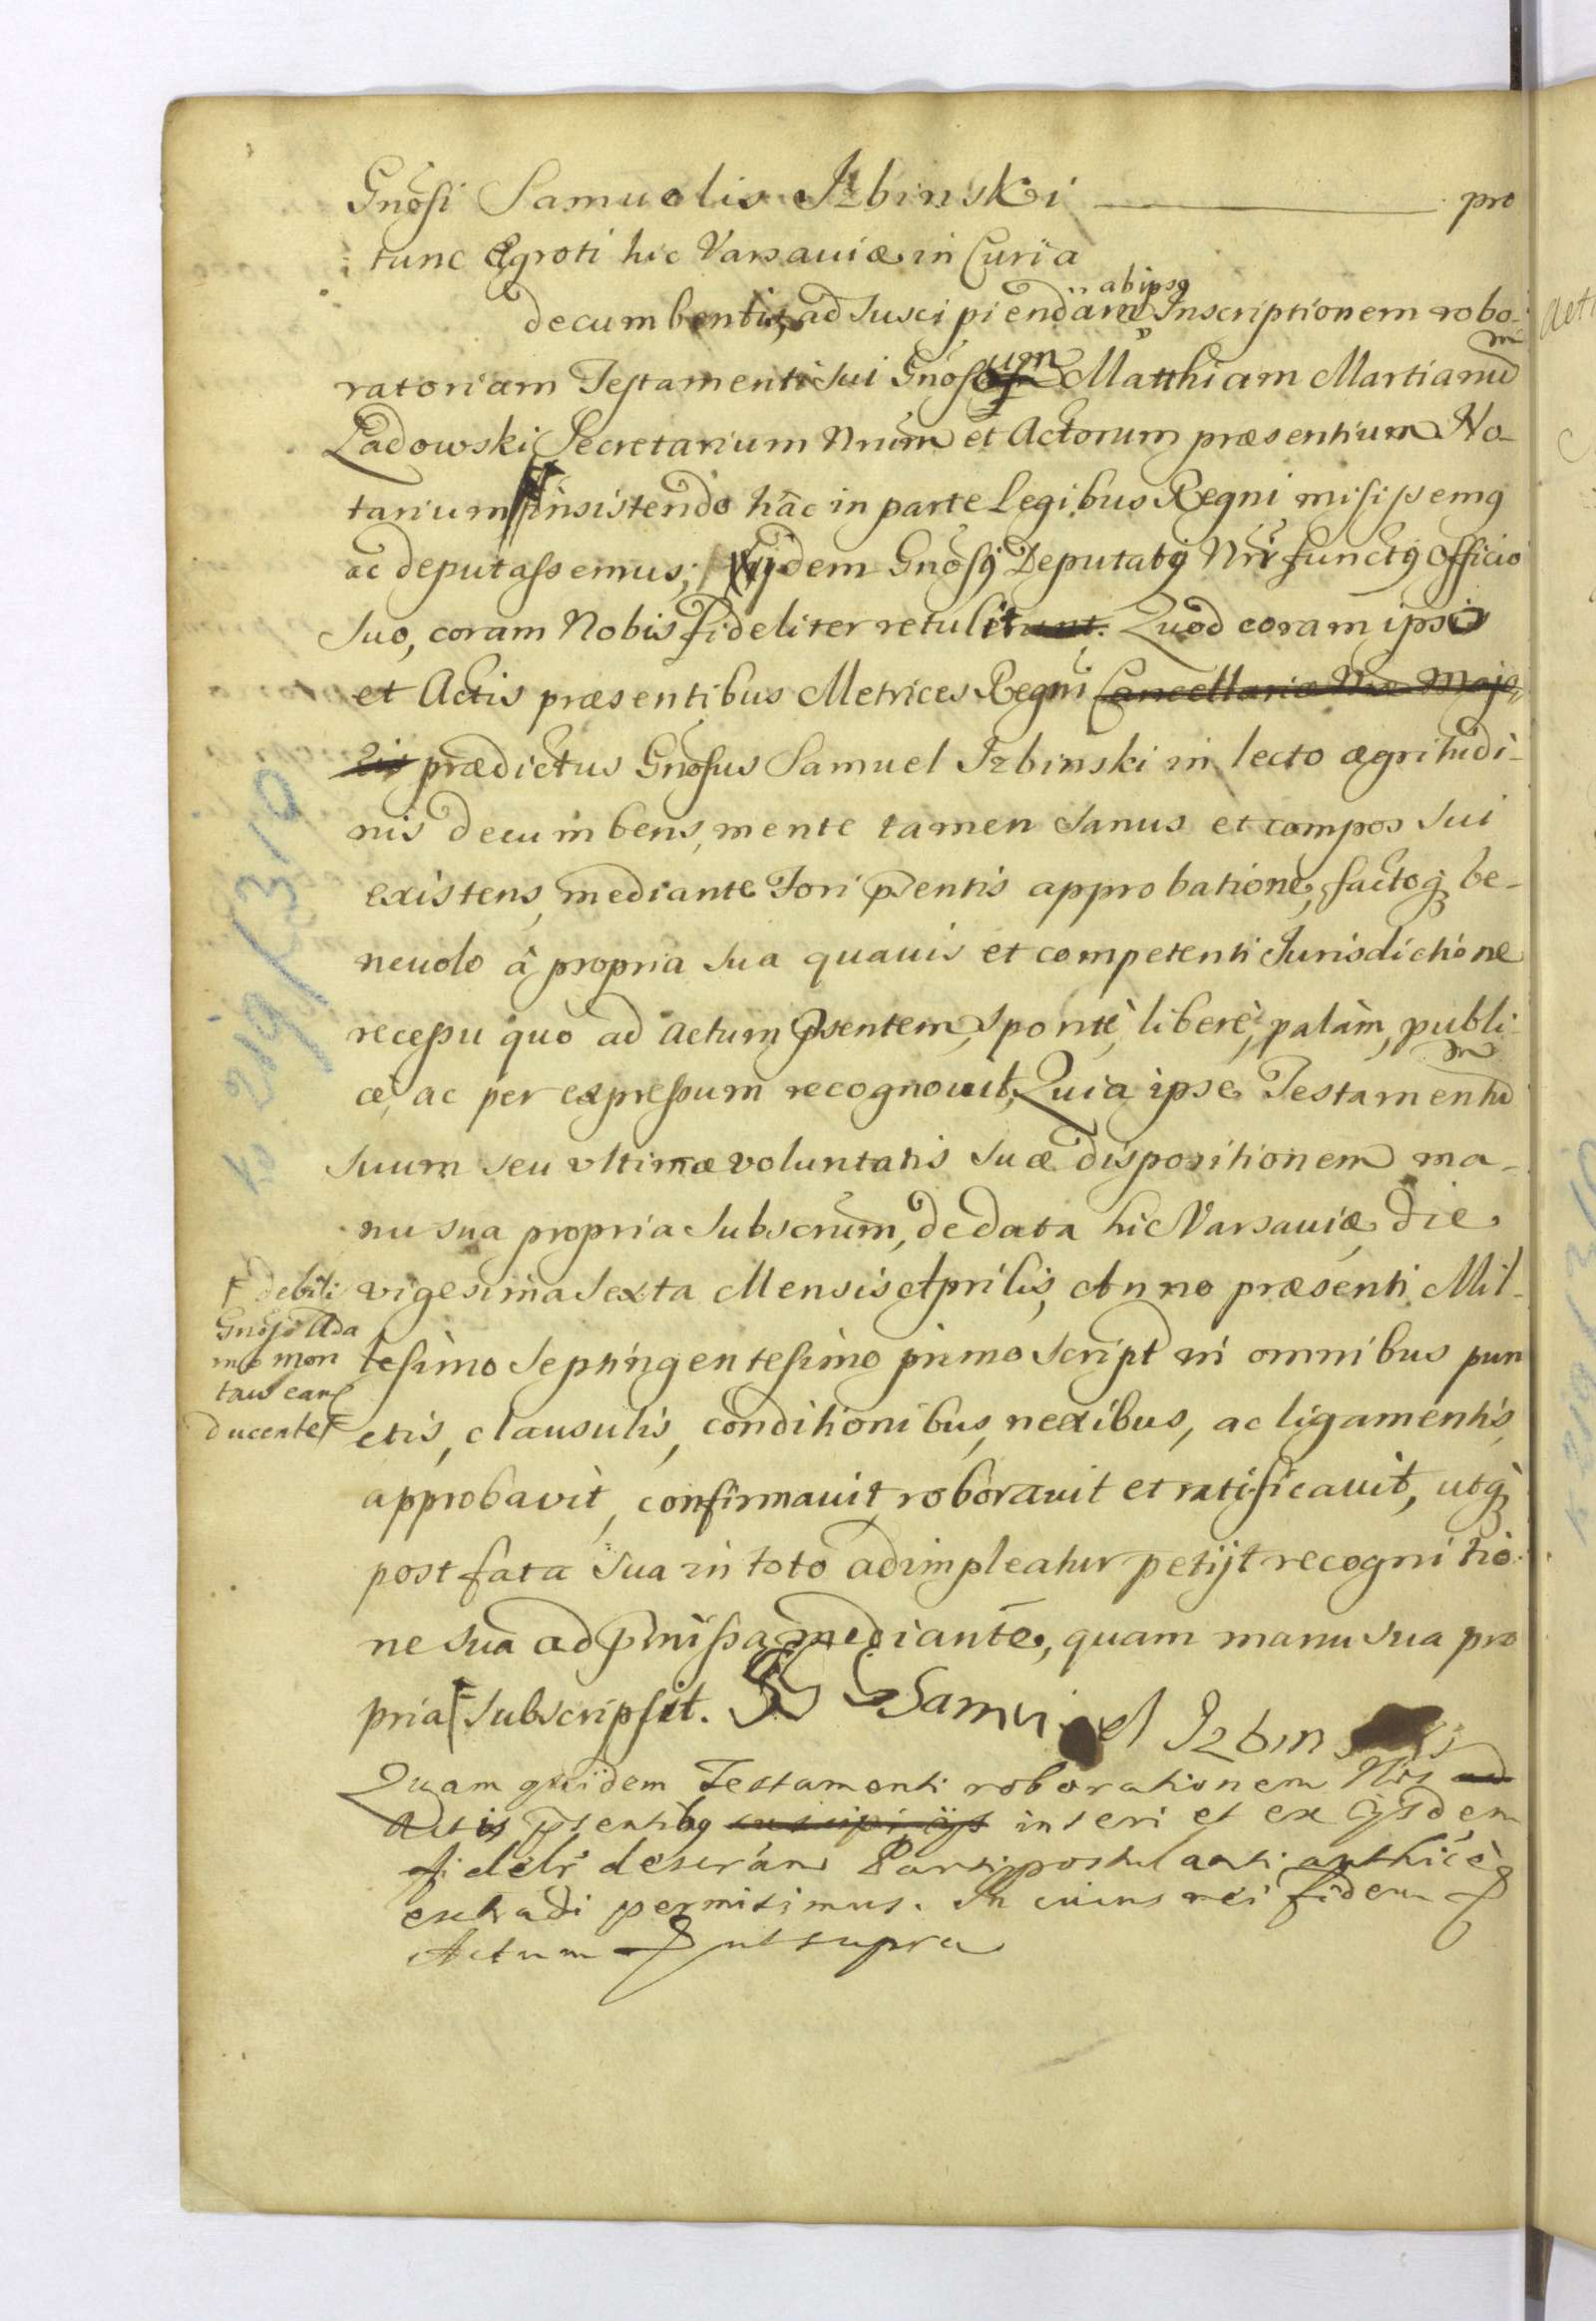 Gnosi Samuelis Izbinski ——— pro
tunc Ægroti hic Varsaviæ in Curia
ab ipso
decumbentis, ad suscipiendam Inscriptionem robo-
ratoriam Testamenti sui Gnosum Matthiam Martianum
Ladowski Secretarium Nrum et Actorum præsentium No-
tarium insistendo hâc in parte Legibus Regni misissemq
ac deputassemus; ijdem Gnosq Deputatq Nr functq Officio
suo, coram Nobis fideliter retulit. Quod coram ipso
et Actis præsentibus Metrices Regni Cancellariæ Nræ Majo-
ris prædictus Gnosus Samuel Izbinski in lecto ægritudi-
nis decumbens, mente tamen sanus et compos sui
existens, mediante Fori pntis approbatione, factoq be-
nevolo â propria sua quavis et competenti Jurisdictione
recessu quò ad actum psentem, spontè, liberè, palàm, publi-
cè, ac per expressum recognovit, Quia ipse Testamentum
suum seu vltimæ voluntatis suæ dispositionem ma-
nu sua propria subscrum, de data hic Varsaviæ die
vigesima sexta Mensis Aprilis, Anno præsenti Mil-
lesimo Septingentesimo primo script in omnibus pun
ctis, clausulis, conditionibus, nexibus, ac ligamentis,
approbavit, confirmavit, roboravit et ratificavit, utq
post fata sua in toto adimpleatur petijt recognitio-
ne sua ad pmissa mediante, quam manu sua pro
pria subscripsit. Samuel Izbinski
debili
Gnoso Ada
mo Mon
taw eam
ducente
Quam quidem Testamenti roborationem Nos ad
Actis psentibq suscipi ijs inseri et ex ijsdem
fideli descriàm Parti postulanti authicè
extradi permisimus. In cuius rei fidem
Actum ut supra
No 219/310